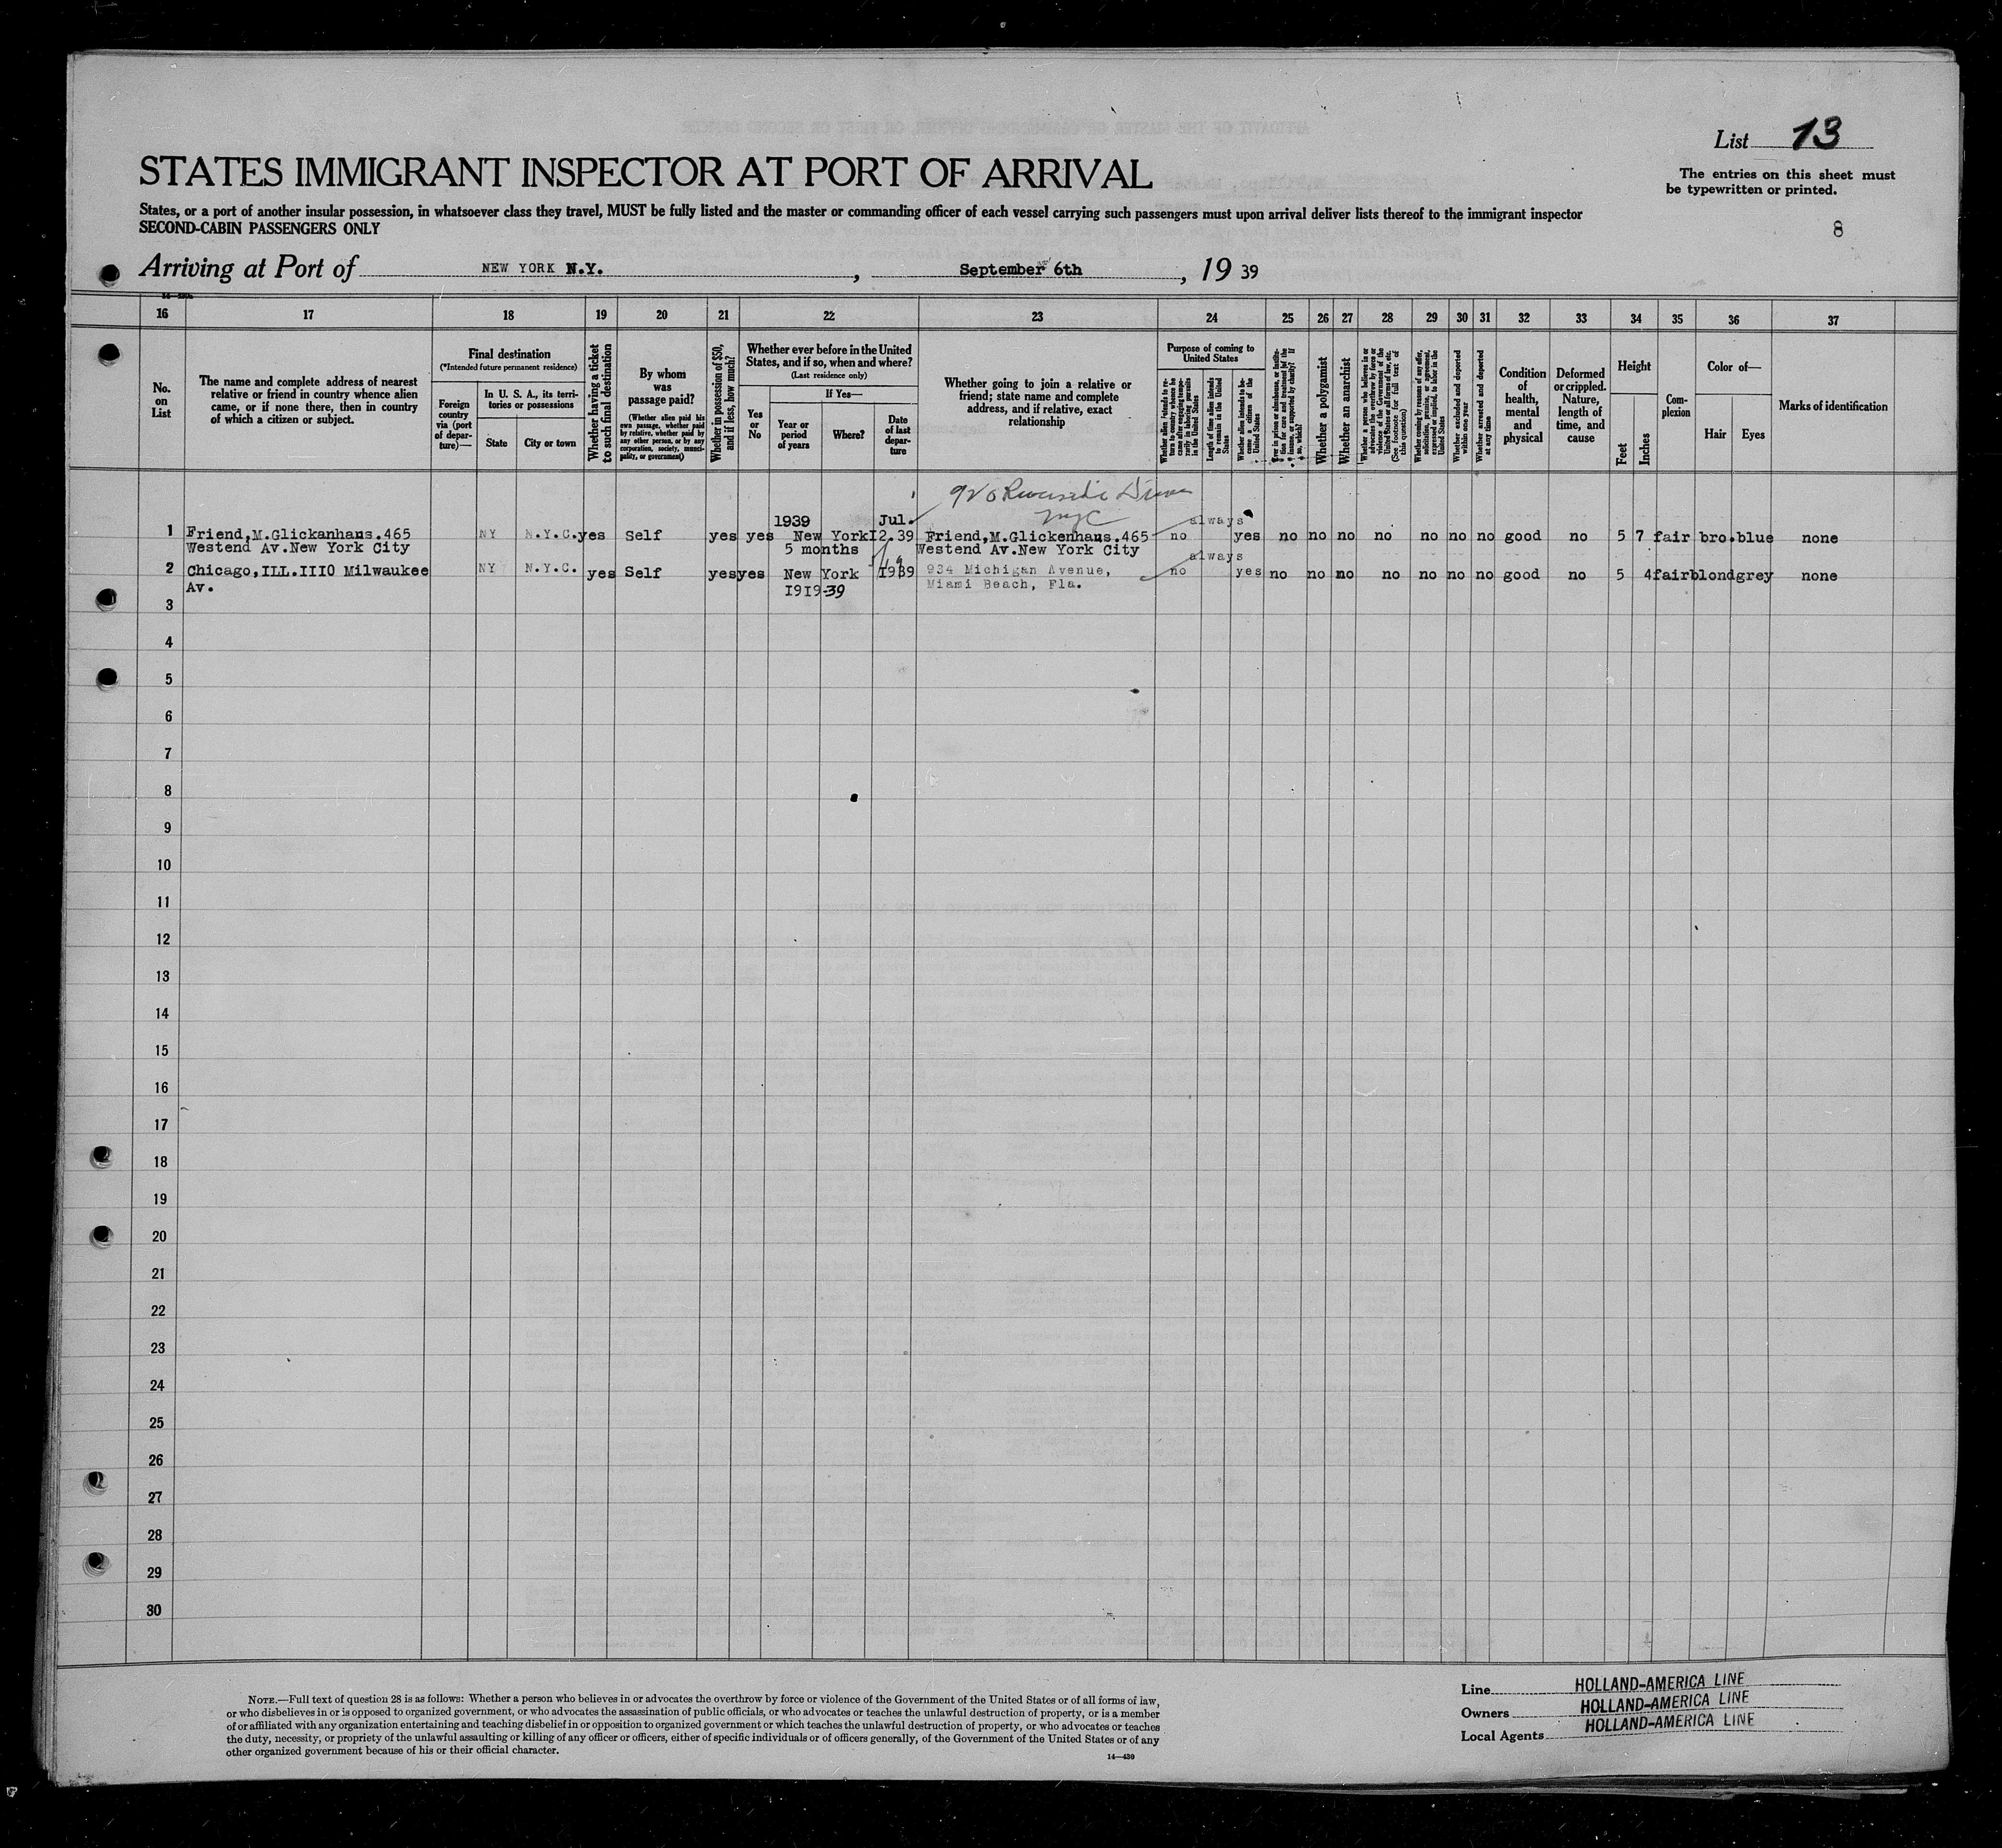 List 13
STATES IMMIGRANT INSPECTOR AT PORT OF ARRIVAL
The entries on this sheet must
be typewritten or printed.
States, or a port of another insular possession, in whatsoever class they travel, MUST be fully listed and the master or commanding officer of each vessel carrying such passengers must upon arrival deliver lists thereof to the immigrant inspector
SECOND-CABIN PASSENGERS ONLY
8
Arriving at Port of NEW YORK N.Y. , September 6th , 19 39
16 17 18 19 20 21 22 23 24 25 26 27 28 29 30 31 32 33 34 35 36 37
No.
on
List
The name and complete address of nearest
relative or friend in country whence alien
came, or if none there, then in country
of which a citizen or subject.
Final destination
(*Intended future permanent residence)
Foreign
country
via (port
of depar-
ture)—
In U. S. A., its terri-
tories or possessions
State
City or town
Whether having a ticket
to such final destination
By whom
was
passage paid?
(Whether alien paid his
own passage, whether paid
by relative, whether paid by
any other person, or by any
corporation, society, munici-
pality, or government)
Whether in possession of $50,
and if less, how much?
Whether ever before in the United
States, and if so, when and where?
(Last residence only)
Yes
or
No
If Yes—
Year or
period
of years
Where?
Date
of last
depar-
ture
Whether going to join a relative or
friend; state name and complete
address, and if relative, exact
relationship
Purpose of coming to
United States
Whether alien intends to re-
turn to country whence he
came after engaging tempo-
rarily in laboring pursuits
in the United States
Length of time alien intends
to remain in the United
States
Whether alien intends to be-
come a citizen of the
United States
Ever in prison or almshouse, or institu-
tion for care and treatment of the
insane, or supported by charity? If
so, which?
Whether a polygamist
Whether an anarchist
Whether a person who believes in or
advocates the overthrow by force or
violence of the Government of the
United States or all forms of law, etc.
(See footnote for full text of
this question)
Whether coming by reason of any offer,
solicitation, promise, or agreement,
expressed or implied, to labor in the
United States
Whether excluded and deported
within one year
Whether arrested and deported
at any time
Condition
of
health,
mental
and
physical
Deformed
or crippled.
Nature,
length of
time, and
cause
Height
Feet
Inches
Com-
plexion
Color of—
Hair
Eyes
Marks of identification
920 Riverside Drive
NYC
1939 Jul. always
1 Friend,M.Glickanhans.465 NY N.Y.C. yes Self yes yes New York I2.39 Friend,M.Glickenhans.465 no yes no no no no no no no good no 5 7 fair bro.blue none
Westend Av.New York City 5 months Westend Av.New York City
always
2 Chicago,ILL.III0 Milwaukee NY N.Y.C. yes Self yes yes New York I939 934 Michigan Avenue, no yes no no no no no no no good no 5 4 fair blond grey none
Av. I9I9-39 Miami Beach, Fla.
3
4
5
6
7
8
9
10
11
12
13
14
15
16
17
18
19
20
21
22
23
24
25
26
27
28
29
30
NOTE.—Full text of question 28 is as follows: Whether a person who believes in or advocates the overthrow by force or violence of the Government of the United States or of all forms of law,
or who disbelieves in or is opposed to organized government, or who advocates the assassination of public officials, or who advocates or teaches the unlawful destruction of property, or is a member
of or affiliated with any organization entertaining and teaching disbelief in or opposition to organized government or which teaches the unlawful destruction of property, or who advocates or teaches
the duty, necessity, or propriety of the unlawful assaulting or killing of any officer or officers, either of specific individuals or of officers generally, of the Government of the United States or of any
other organized government because of his or their official character.
14—430
Line HOLLAND-AMERICA LINE
Owners HOLLAND-AMERICA LINE
Local Agents HOLLAND-AMERICA LINE